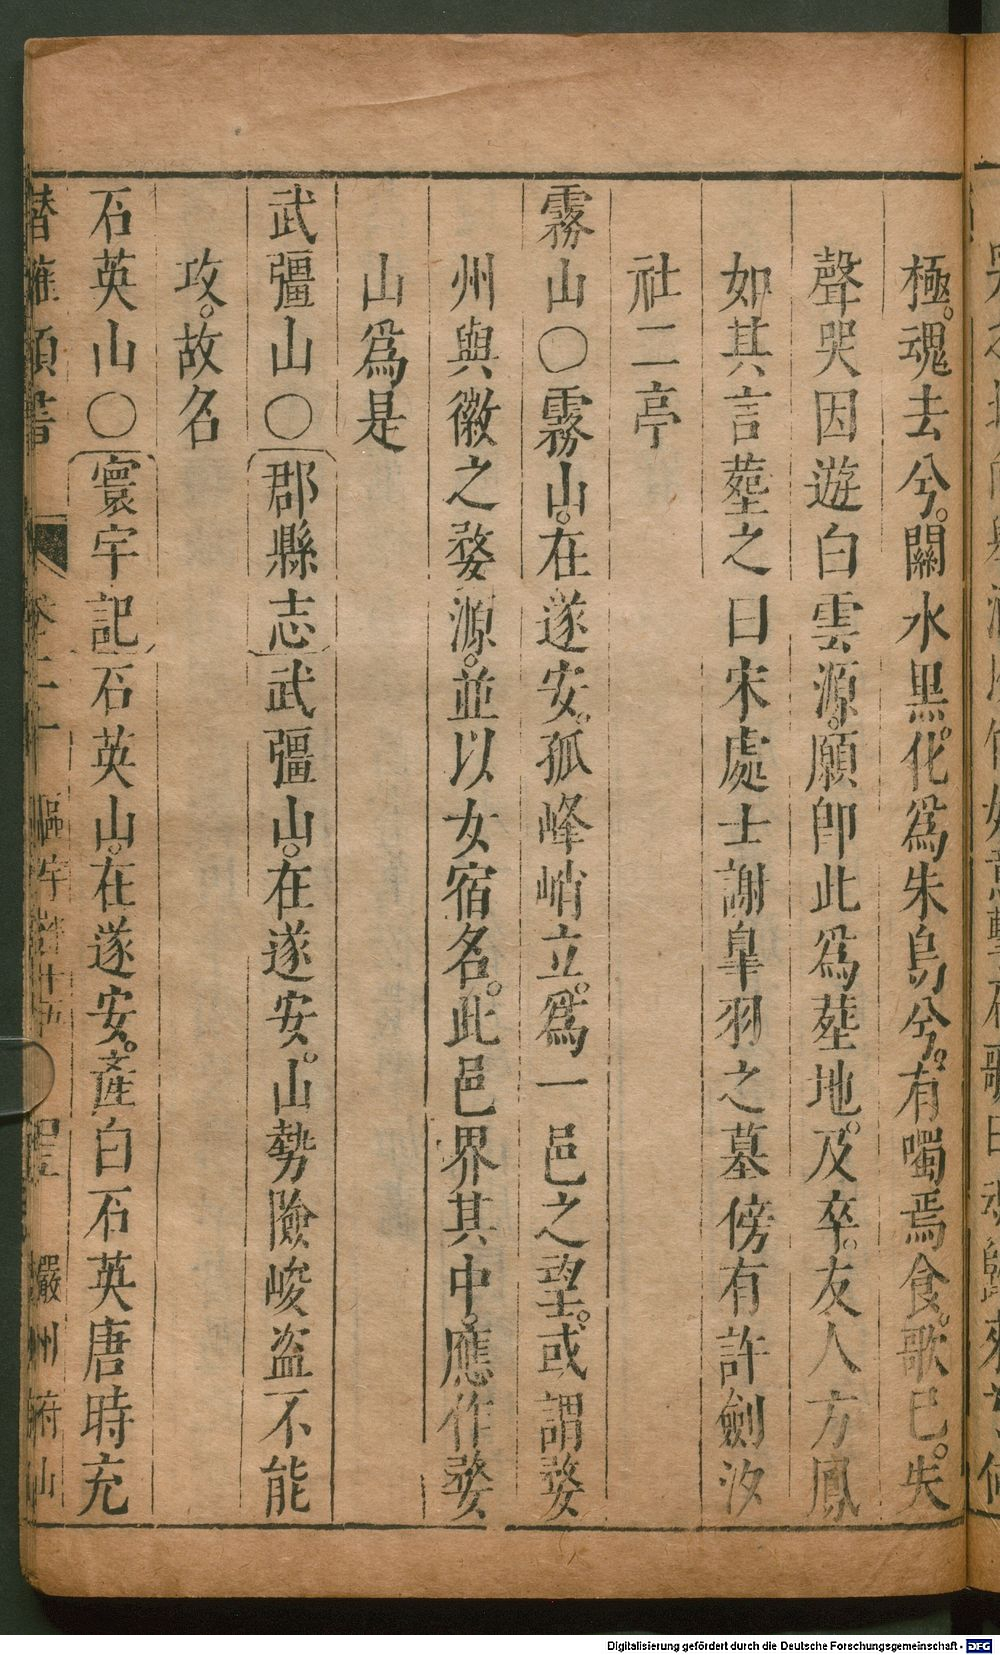 極。魂去兮。關水黑。化爲朱鳥兮。有噣焉食。歌已。失
聲哭因遊白雲源。願卽此爲塟地。及卒。友人方鳳
如其言塟之曰宋處士謝臯羽之墓傍有許劍汐
社二亭
霧山〇霧山。在遂安。孤峰峭立。爲一邑之望。或謂婺
州與徽之婺源。並以女宿名。此邑界其中。應作婺
山爲是
武彊山〇郡縣志武彊山。在遂安。山勢險峻盗不能
攻。故名
石英山〇寰宇記石英山。在遂安。產白石英唐時充
潛確類書 卷二十 區宇 十五 嚴州府山
Digitalisierung gefördert durch die Deutsche Forschungsgemeinschaft - DFG